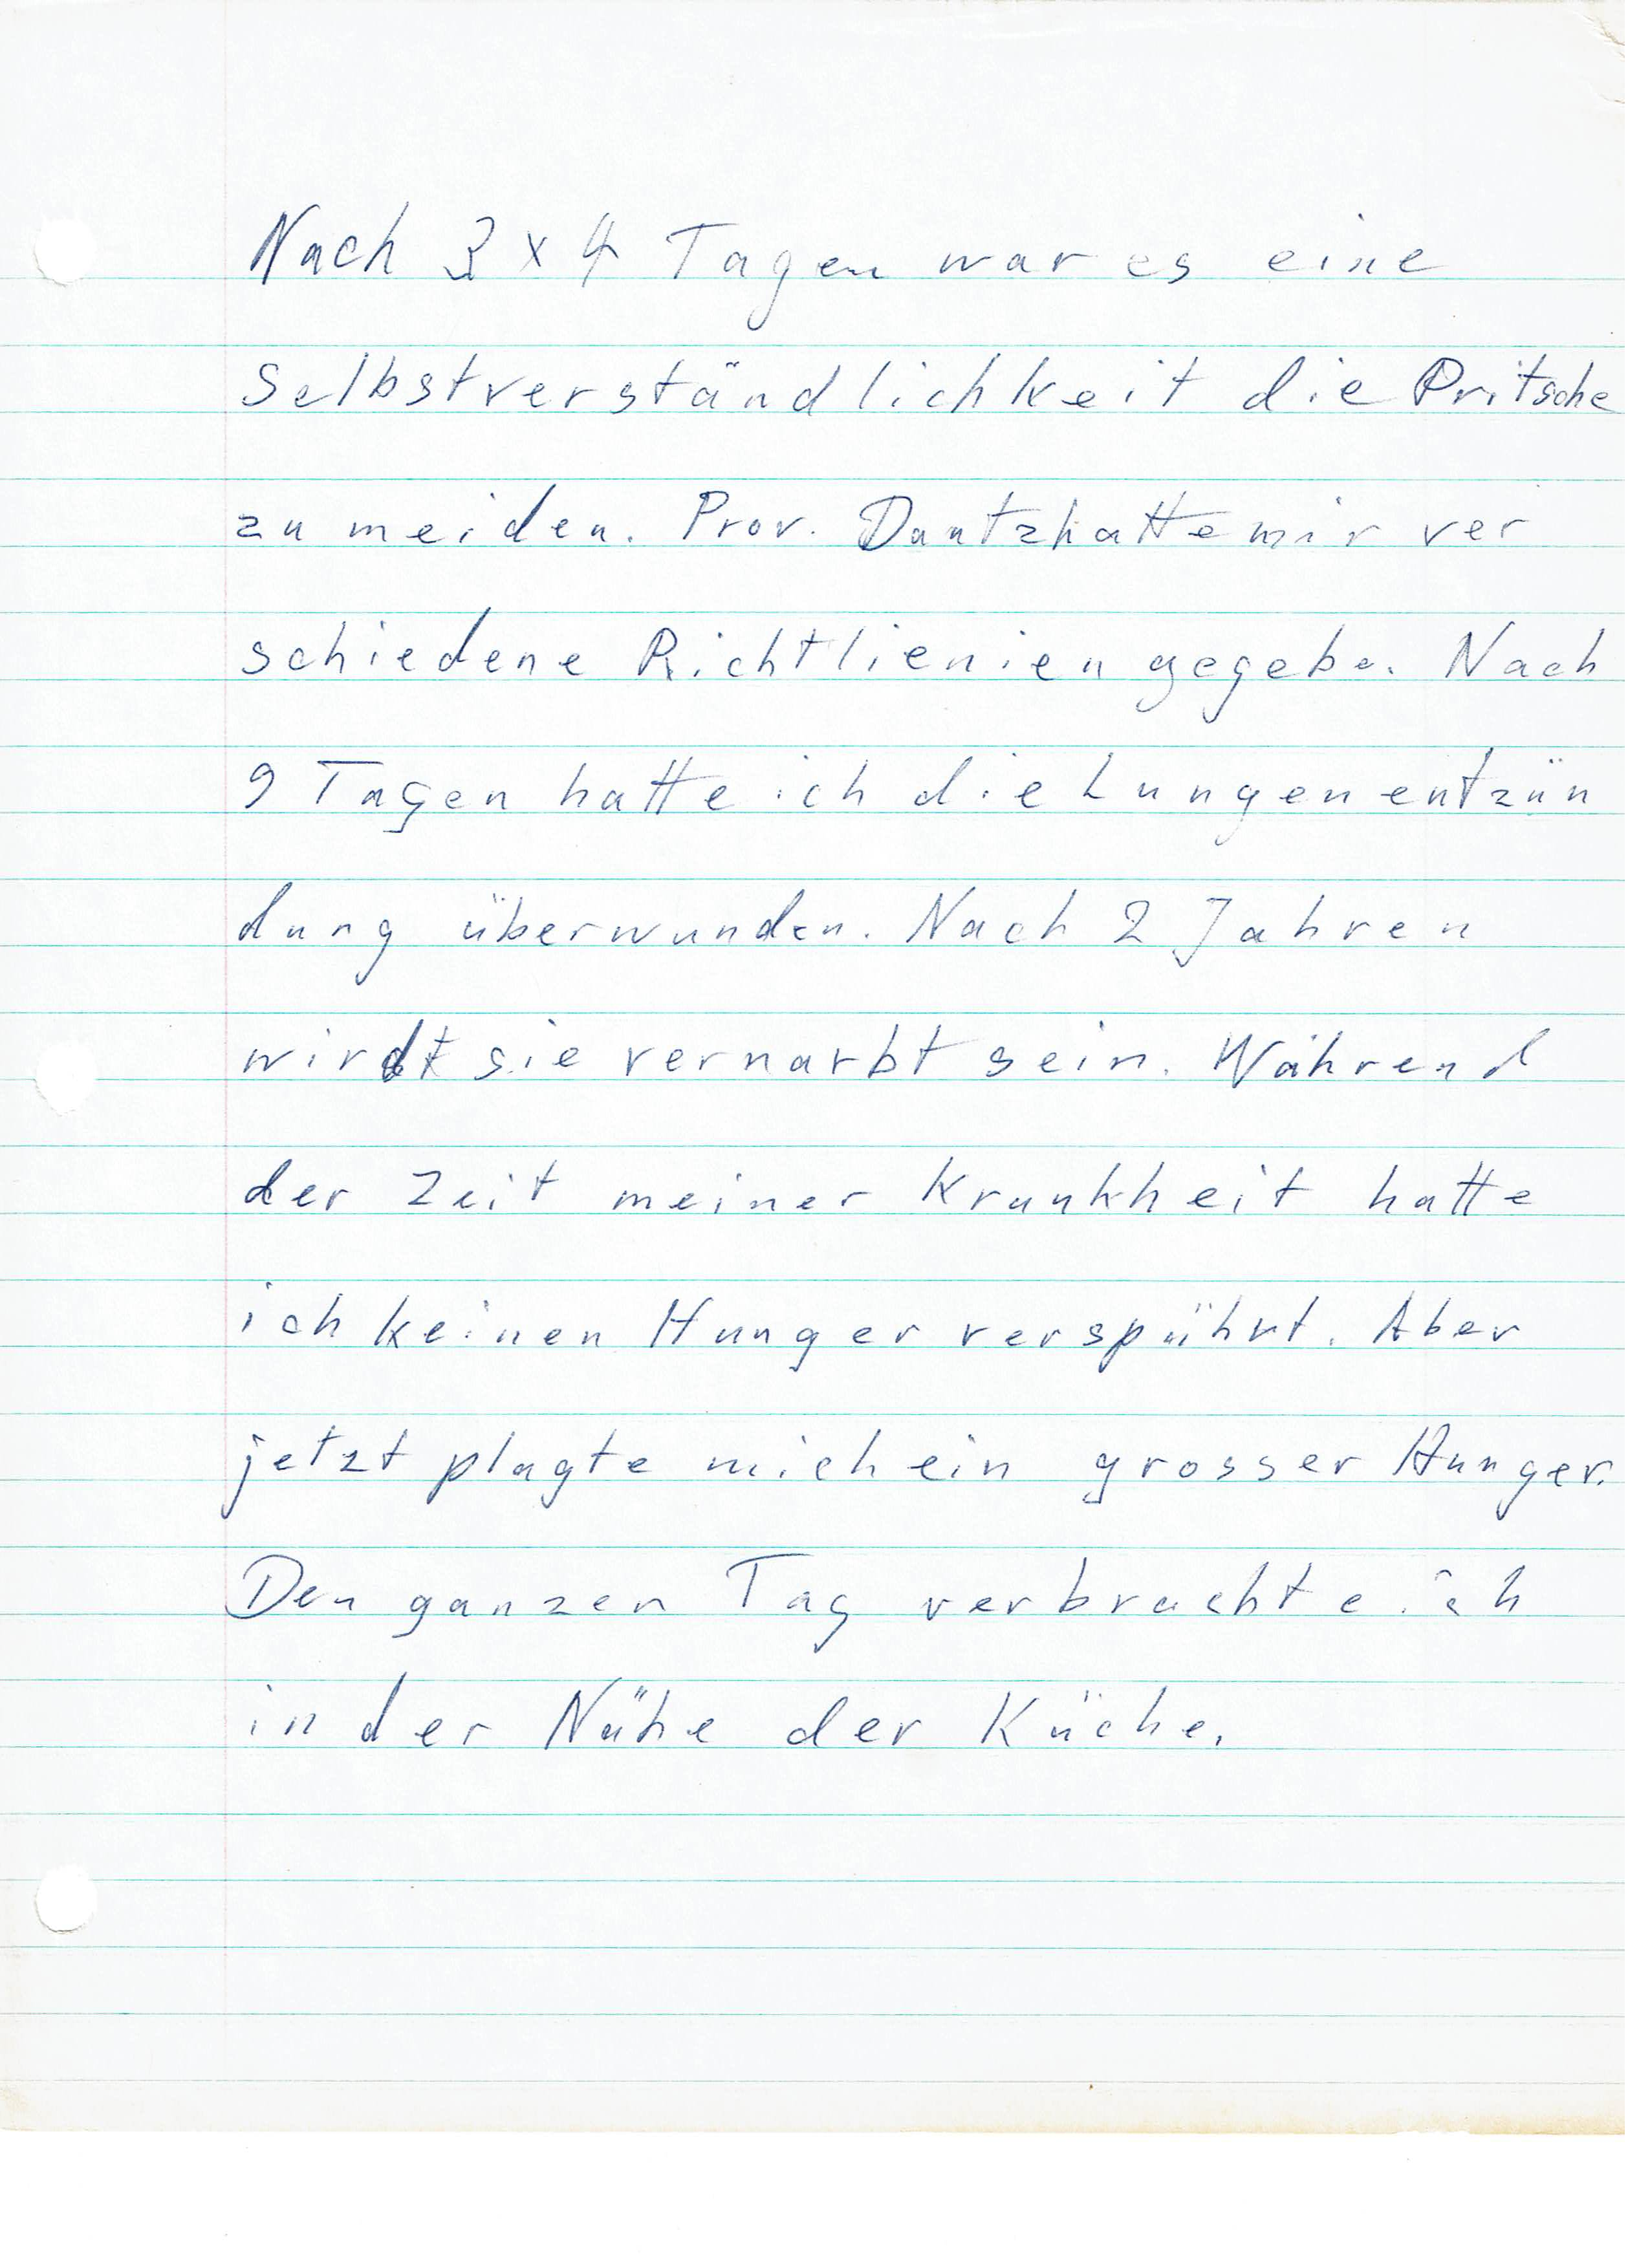 Nach 3 x 4 Tagen war es eine
Selbstverständlichkeit die Pritsche
zu meiden. Prov. Dautz hatte mir ver
schiedene Richtlienien gegebe. Nach
9 Tagen hatte ich die Lungenentzün
dung überwunden. Nach 2 Jahren
wirdt sie vernarbt sein. Während
der Zeit meiner Krankheit hatte
ich keinen Hunger verspührt. Aber
jetzt plagte mich ein grosser Hunger.
Den ganzen Tag verbrachte ich
in der Nähe der Küche.